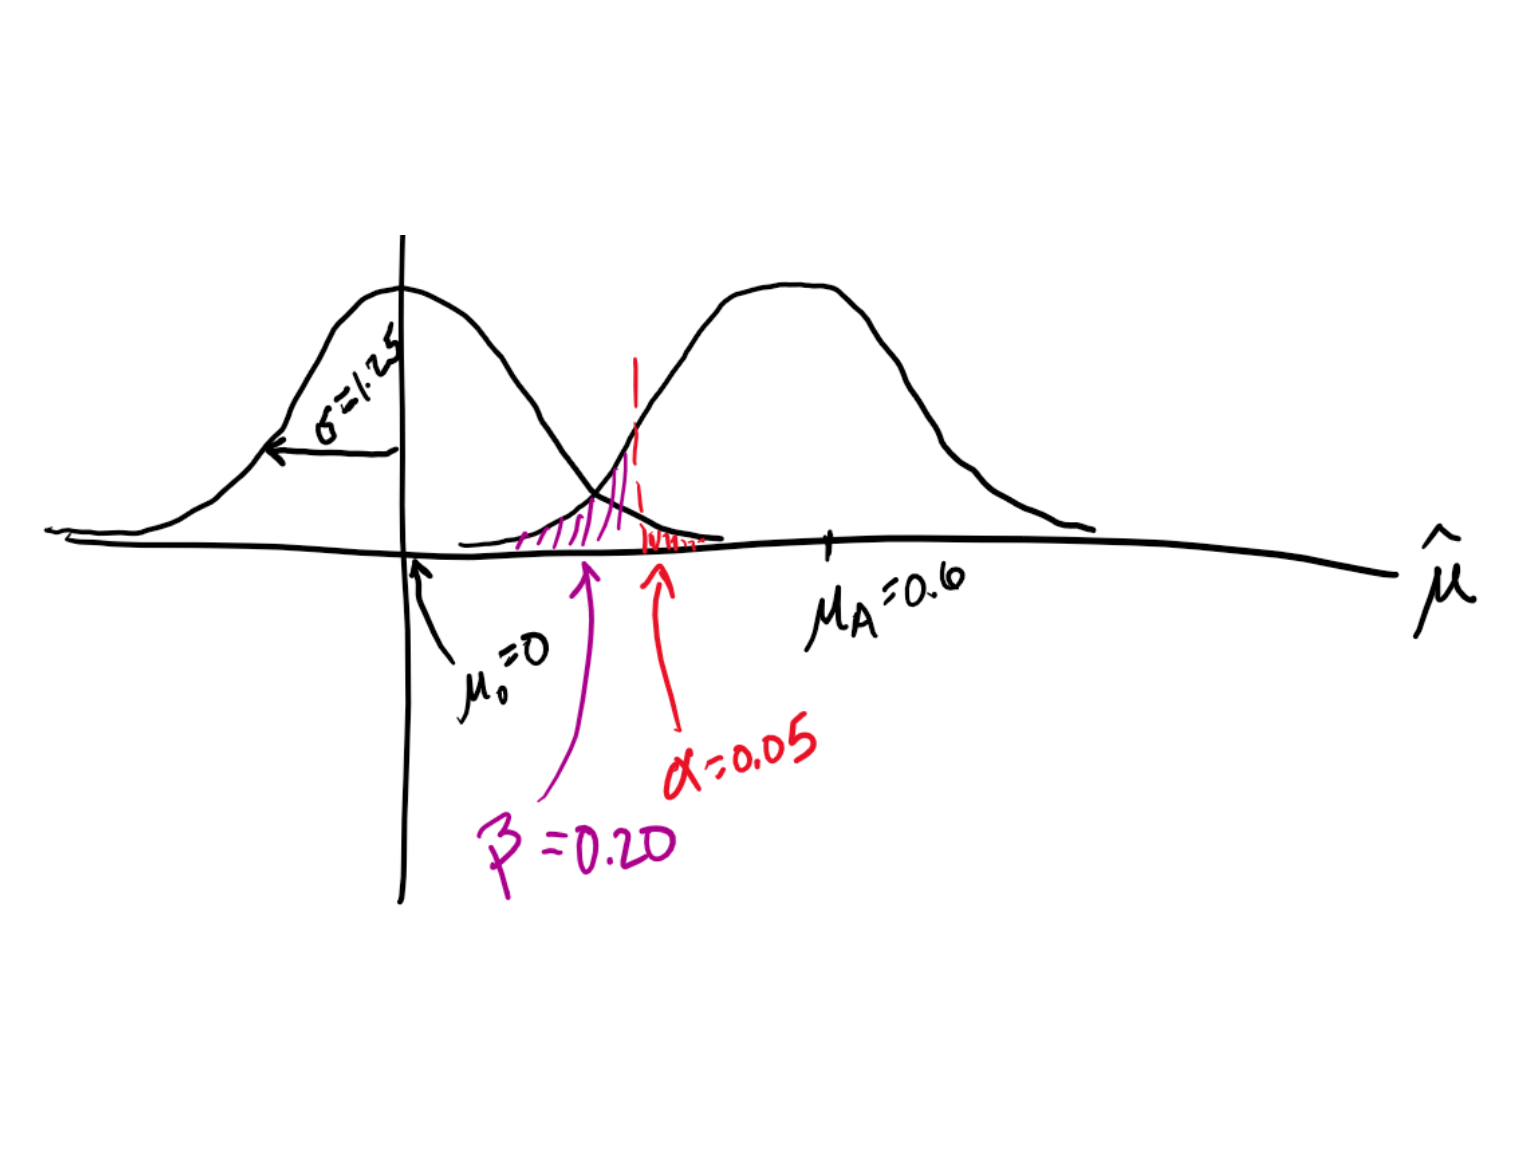 σ=1.25
μ̂
μ₀=0
μ_A=0.6
α=0.05
β=0.20